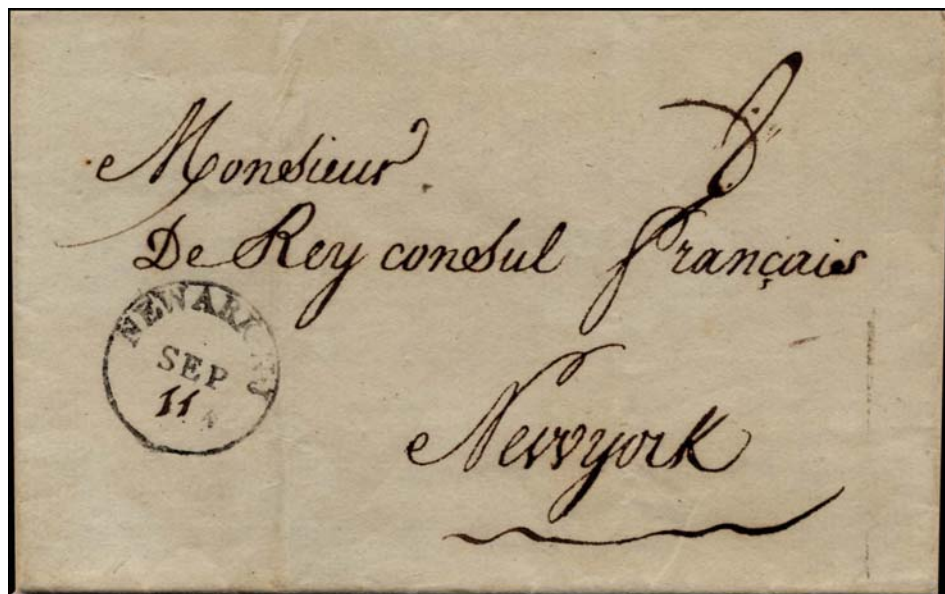 8
Monsieur
De Rey consul français
NEWARK NJ
SEP
11
Newyork